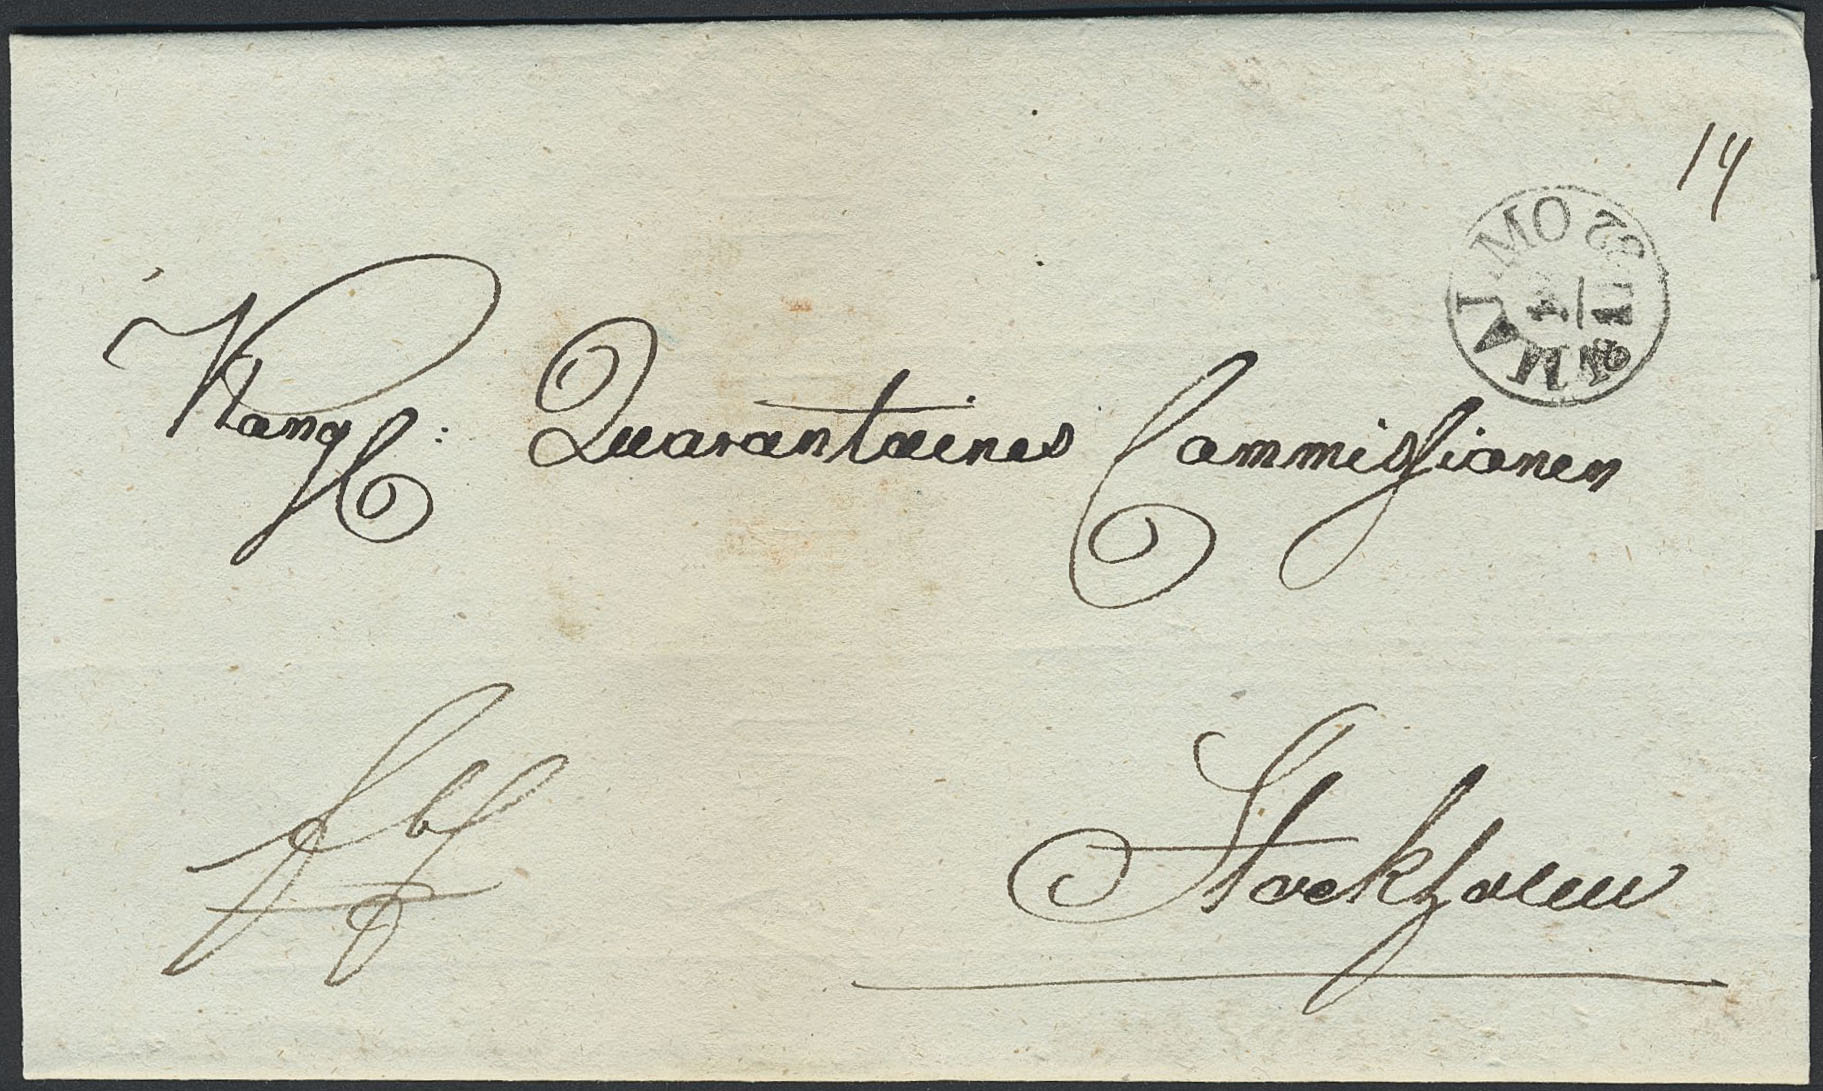 14
MALMÖ
Kongl: Quarantaines Commissionen
Stockholm